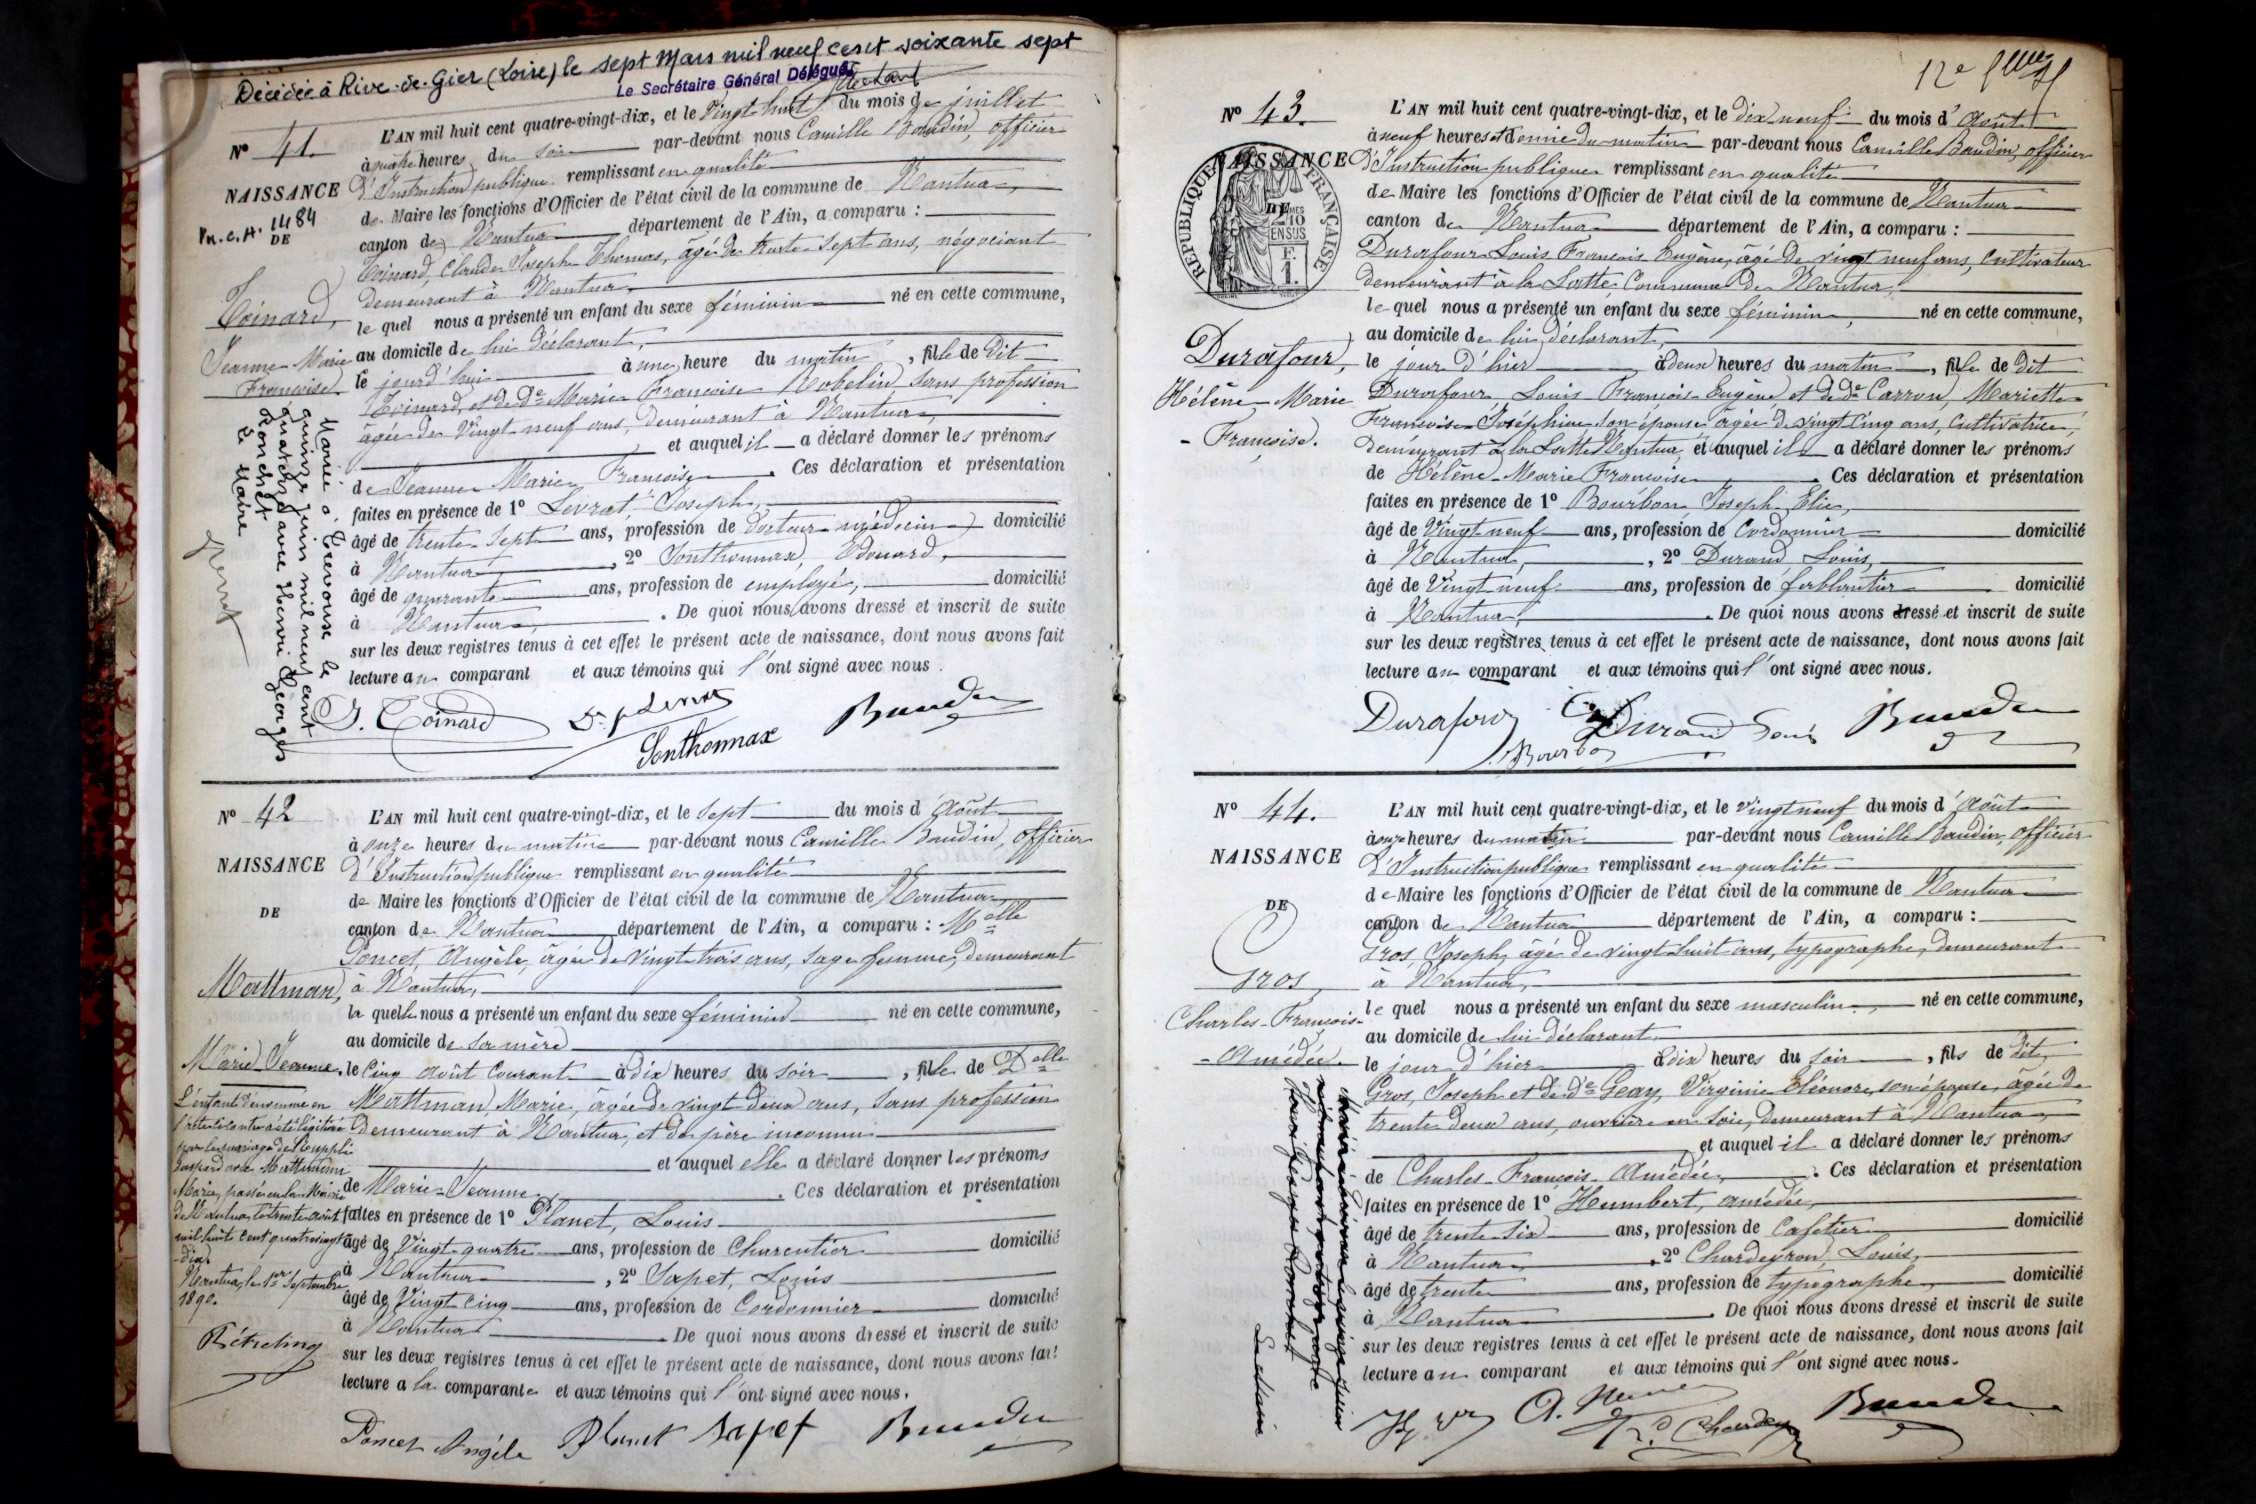 Décédée à Rive-de-Gier (Loire) le sept Mars mil neuf cent soixante sept
Le Secrétaire Général Délégué
N° 41.
NAISSANCE
DE
1484
Toinard,
Jeanne Marie
Françoise.
Mariée à Trévouse le
quinze juin mil neuf cent
quatorze avec Henri Georges
Ronchet
Le Maire
L'AN mil huit cent quatre-vingt-dix, et le Vingt huit du mois de juillet
à quatre heures du soir par-devant nous Camille Baudin, officier
d'Instruction publique remplissant en qualité
de Maire les fonctions d'Officier de l'état civil de la commune de Nantua,
canton de Nantua département de l'Ain, a comparu :
Toinard, Claude Joseph Thomas, âgé de trente sept ans, négociant
demeurant à Nantua
le quel nous a présenté un enfant du sexe féminin né en cette commune,
au domicile de lui déclarant,
le jourd'hui à une heure du matin, fille de dit
Toinard, et de de Marie Françoise Robelin sans profession
âgée de Vingt neuf ans, demeurant à Nantua,
et auquel il a déclaré donner les prénoms
de Jeanne Marie Françoise. Ces déclaration et présentation
faites en présence de 1° Levrat Joseph,
âgé de trente sept ans, profession de docteur médecin domicilié
à Nantua, 2° Sonthonnax, Edouard,
âgé de quarante ans, profession de employé, domicilié
à Nantua, . De quoi nous avons dressé et inscrit de suite
sur les deux registres tenus à cet effet le présent acte de naissance, dont nous avons fait
lecture au comparant et aux témoins qui l'ont signé avec nous.
J. Toinard Dr J Levrat Baudin
Sonthonnax
N° 42
NAISSANCE
DE
Mattman,
Marie Jeanne.
L'enfant dénommé en
l'acte ci-contre a été légitimé
par le mariage de
Gaspard avec Mattmann
Marie, passé en la Mairie
de Nantua le trente août
mil huit cent quatre vingt
dix.
Nantua, le 1er Septembre
1890.
L'AN mil huit cent quatre-vingt-dix, et le Sept du mois d'Août
à onze heures du matin par-devant nous Camille Baudin, officier
d'Instruction publique remplissant en qualité
de Maire les fonctions d'Officier de l'état civil de la commune de Nantua
canton de Nantua département de l'Ain, a comparu : Melle
Poncet, Angèle, âgée de vingt trois ans, sage femme, demeurant
à Nantua,
la quelle nous a présenté un enfant du sexe féminin né en cette commune,
au domicile de sa mère
le Cinq Août courant à dix heures du soir, fille de Delle
Mattman, Marie, âgée de vingt deux ans, sans profession
demeurant à Nantua, et de père inconnu
et auquel elle a déclaré donner les prénoms
de Marie Jeanne. Ces déclaration et présentation
faites en présence de 1° Planet, Louis
âgé de Vingt quatre ans, profession de Charcutier domicilié
à Nantua, 2° Sapet, Louis
âgé de Vingt cinq ans, profession de Cordonnier domicilié
à Nantua. De quoi nous avons dressé et inscrit de suite
sur les deux registres tenus à cet effet le présent acte de naissance, dont nous avons fait
lecture a la comparante et aux témoins qui l'ont signé avec nous.
Poncet Angèle Planet Sapet Baudin
12e
N° 43.
NAISSANCE
DE
RÉPUBLIQUE FRANÇAISE
2/10 EN SUS
F.
1.
Durafour,
Hélène Marie
Françoise.
L'AN mil huit cent quatre-vingt-dix, et le dix neuf du mois d'Août
à neuf heures et demie du matin par-devant nous Camille Baudin, officier
d'Instruction publique remplissant en qualité
de Maire les fonctions d'Officier de l'état civil de la commune de Nantua
canton de Nantua département de l'Ain, a comparu :
Durafour Louis François Eugène, âgé de vingt neuf ans, cultivateur
demeurant à la Latte Commune de Nantua,
le quel nous a présenté un enfant du sexe féminin, né en cette commune,
au domicile de lui déclarant,
le jour d'hier à deux heures du matin, fille de dit
Durafour, Louis François Eugène, et de de Carron, Mariette
Françoise Joséphine son épouse âgée de vingt cinq ans, cultivatrice,
demeurant à la Latte Nantua, et auquel il a déclaré donner les prénoms
de Hélène Marie Françoise. Ces déclaration et présentation
faites en présence de 1° Bourbon, Joseph Elie,
âgé de Vingt neuf ans, profession de Cordonnier domicilié
à Nantua, 2° Durand Louis,
âgé de Vingt neuf ans, profession de ferblantier domicilié
à Nantua,. De quoi nous avons dressé et inscrit de suite
sur les deux registres tenus à cet effet le présent acte de naissance, dont nous avons fait
lecture au comparant et aux témoins qui l'ont signé avec nous.
Durafour Durand Louis Baudin
Bourbon
N° 44.
NAISSANCE
DE
Gros,
Charles-François-
Amédée.
Le Maire
L'AN mil huit cent quatre-vingt-dix, et le vingt neuf du mois d'Août
à onze heures du matin par-devant nous Camille Baudin, officier
d'Instruction publique remplissant en qualité
de Maire les fonctions d'Officier de l'état civil de la commune de Nantua
canton de Nantua département de l'Ain, a comparu :
Gros, Joseph, âgé de vingt huit ans, typographe, demeurant
à Nantua,
le quel nous a présenté un enfant du sexe masculin, né en cette commune,
au domicile de lui déclarant,
le jour d'hier à dix heures du soir, fils de dit
Gros, Joseph et de de Geay, Virginie Eléonore, son épouse, âgée de
trente deux ans, ouvrière en soie, demeurant à Nantua,
et auquel il a déclaré donner les prénoms
de Charles-François-Amédée,. Ces déclaration et présentation
faites en présence de 1° Humbert, Amédée,
âgé de trente six ans, profession de Cafetier domicilié
à Nantua, 2° Chardeyron, Louis,
âgé de trente ans, profession de typographe, domicilié
à Nantua. De quoi nous avons dressé et inscrit de suite
sur les deux registres tenus à cet effet le présent acte de naissance, dont nous avons fait
lecture au comparant et aux témoins qui l'ont signé avec nous.
Baudin